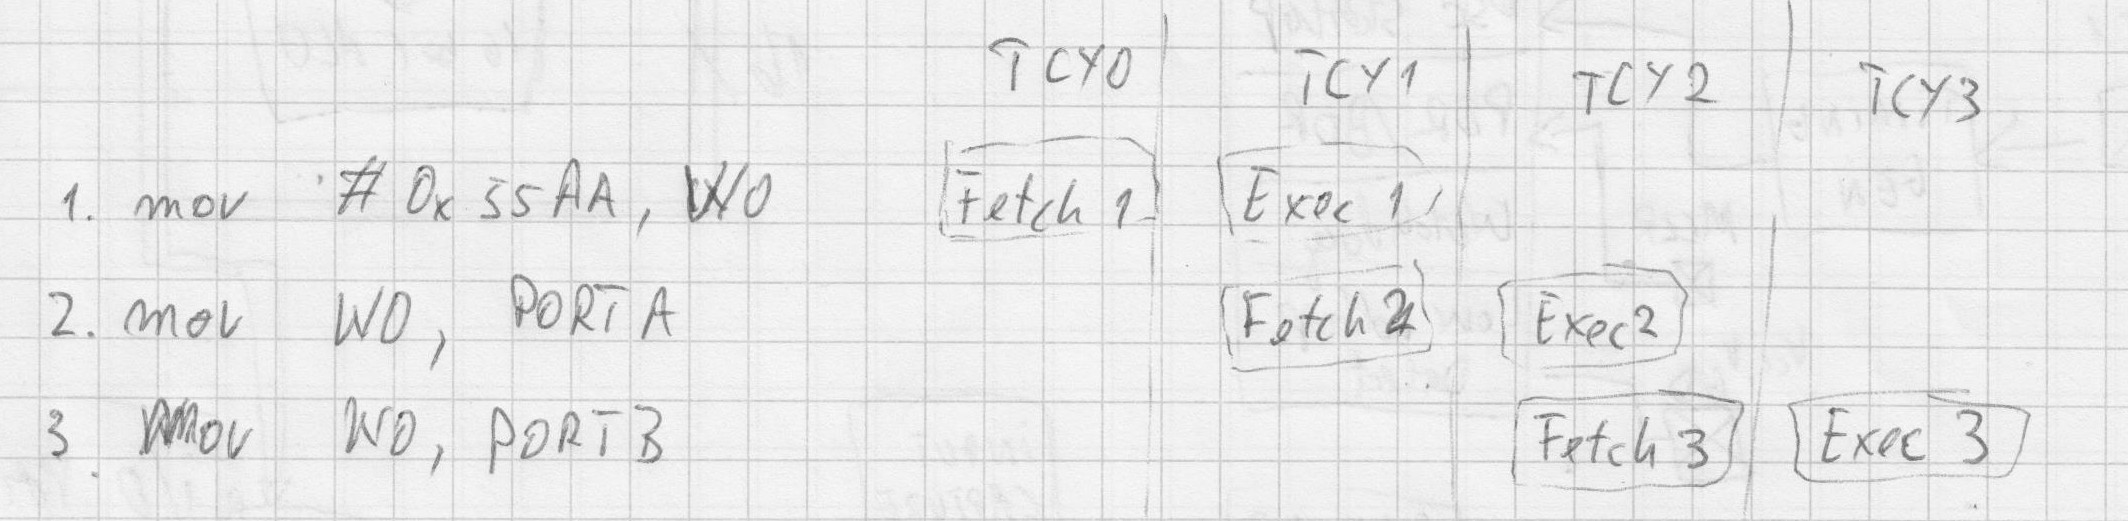 TCY0 TCY1 TCY2 TCY3
1. mov #0x55AA, W0 Fetch 1 Exec 1
2. mov W0, PORTA Fetch 2 Exec2
3. mov W0, PORTB Fetch 3 Exec 3